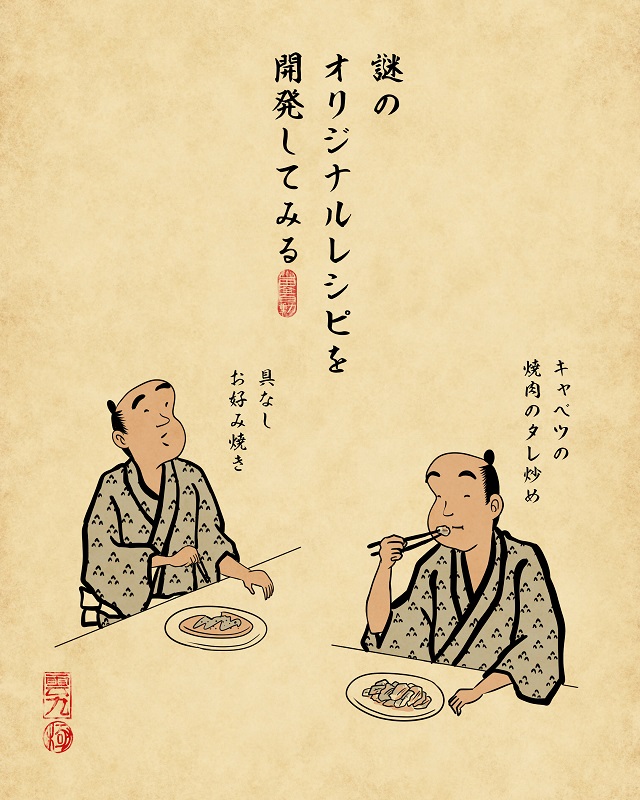 謎の
オリジナルレシピを
開発してみる
キャベツの
焼肉のタレ炒め
具なし
お好み焼き